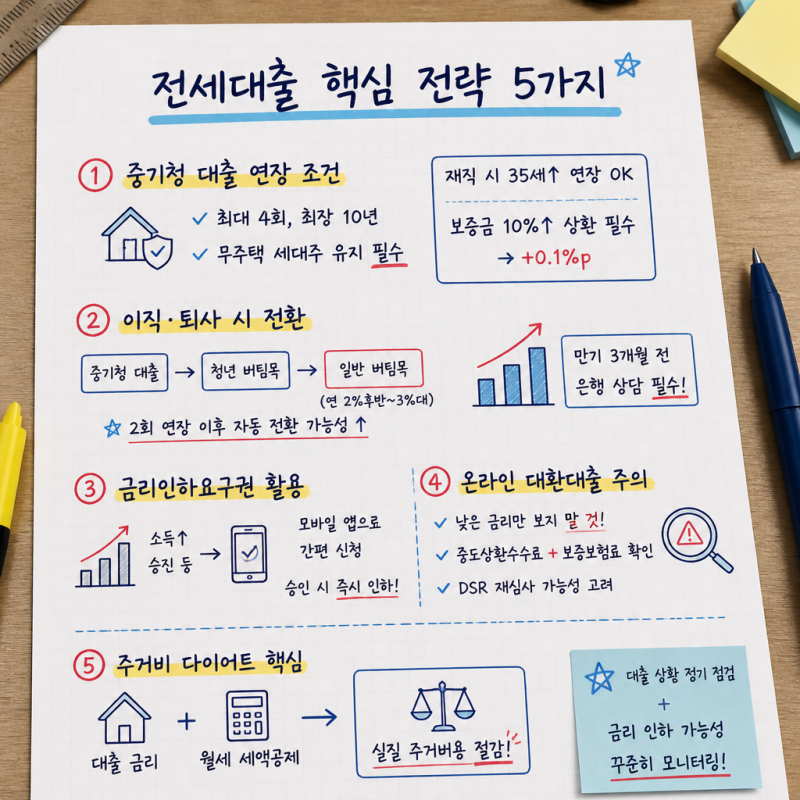 전세대출 핵심 전략 5가지
① 중기청 대출 연장 조건
✓ 최대 4회, 최장 10년
✓ 무주택 세대주 유지 필수
재직 시 35세↑ 연장 OK
보증금 10%↑ 상환 필수
→ +0.1%p
② 이직·퇴사 시 전환
중기청 대출 → 청년 버팀목 → 일반 버팀목
(연 2%후반~3%대)
☆ 2회 연장 이후 자동 전환 가능성 ↑
만기 3개월 전
은행 상담 필수!
③ 금리인하요구권 활용
소득↑
승진 등 →
모바일 앱으로
간편 신청
승인 시 즉시 인하!
④ 온라인 대환대출 주의
✓ 낮은 금리만 보지 말 것!
✓ 중도상환수수료 + 보증보험료 확인
✓ DSR 재심사 가능성 고려
⑤ 주거비 다이어트 핵심
대출 금리 + 월세 세액공제 →
실질 주거버용 절감!
☆ 대출 상황 정기 점검
+
금리 인하 가능성
꾸준히 모니터링!